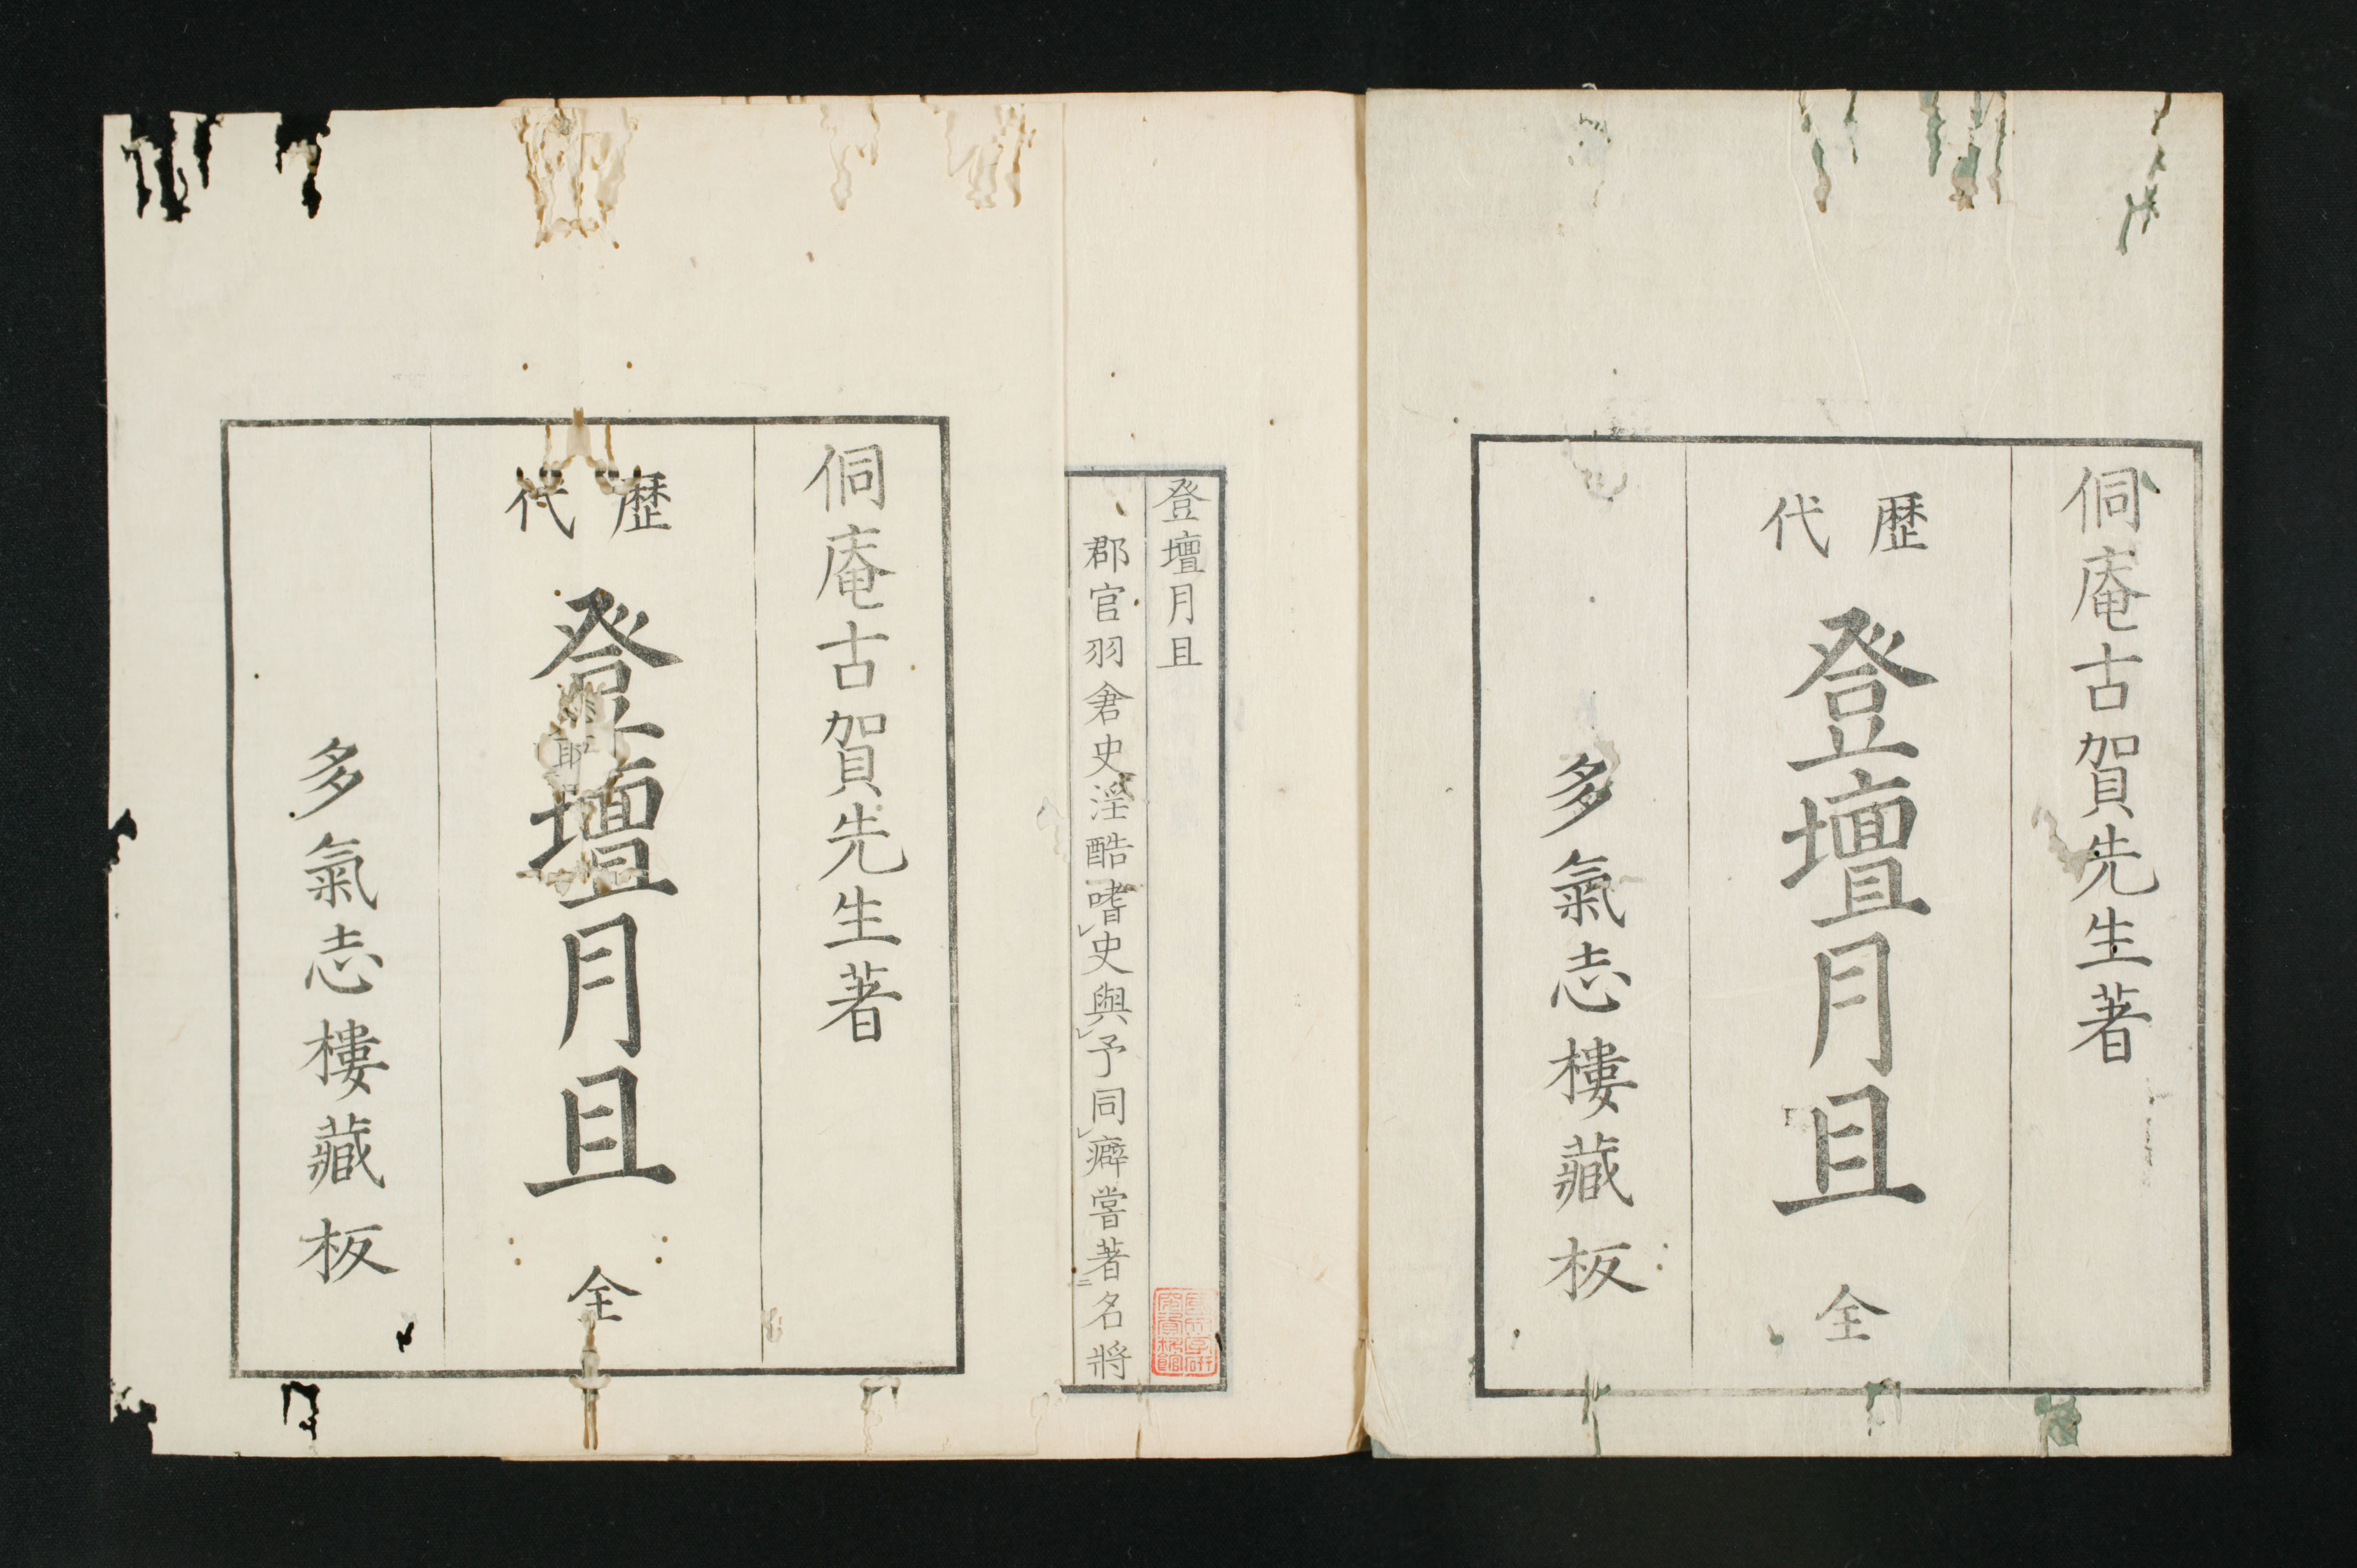 侗庵古賀先生著
歴代
登壇月旦 全
多氣志樓藏板
登壇月旦
郡官羽倉史淫酷嗜史與予同癖嘗著名將
侗庵古賀先生著
歴代
登壇月旦 全
多氣志樓藏板